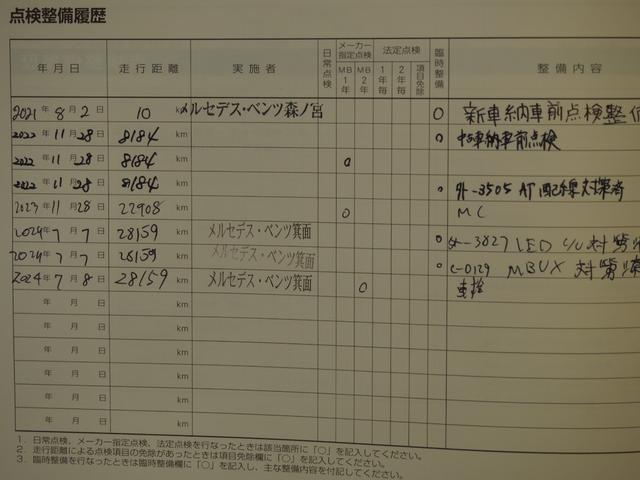 点検整備履歴
年月日 走行距離 実施者 日常点検 メーカー指定点検 MB1年 MB2年 法定点検 1年毎 2年毎 項目免除 臨時整備 整備内容
2021年8月2日 10 km メルセデス・ベンツ森ノ宮 ○ 新車納車前点検整備
2022年11月28日 8184 km ○ 中古車納車前点検
2022年11月28日 8184 km ○
2022年11月28日 8184 km ○ 外-3505 AT配線対策済
2023年11月28日 22908 km ○ MC
2024年7月7日 28159 km メルセデス・ベンツ箕面 ○ 3827 LED C/U 対策
2024年7月7日 28159 km メルセデス・ベンツ箕面 ○ C-0129 MBUX 対策
2024年7月8日 28159 km メルセデス・ベンツ箕面 ○ 車検
年 月 日 km
年 月 日 km
年 月 日 km
年 月 日 km
年 月 日 km
年 月 日 km
1. 日常点検、メーカー指定点検、法定点検を行なったときは該当箇所に「○」を記入してください。
2. 走行距離による点検項目の免除があったときは項目免除欄に「○」を記入してください。
3. 臨時整備を行なったときは臨時整備欄に「○」を記入し、主な整備内容を付記してください。